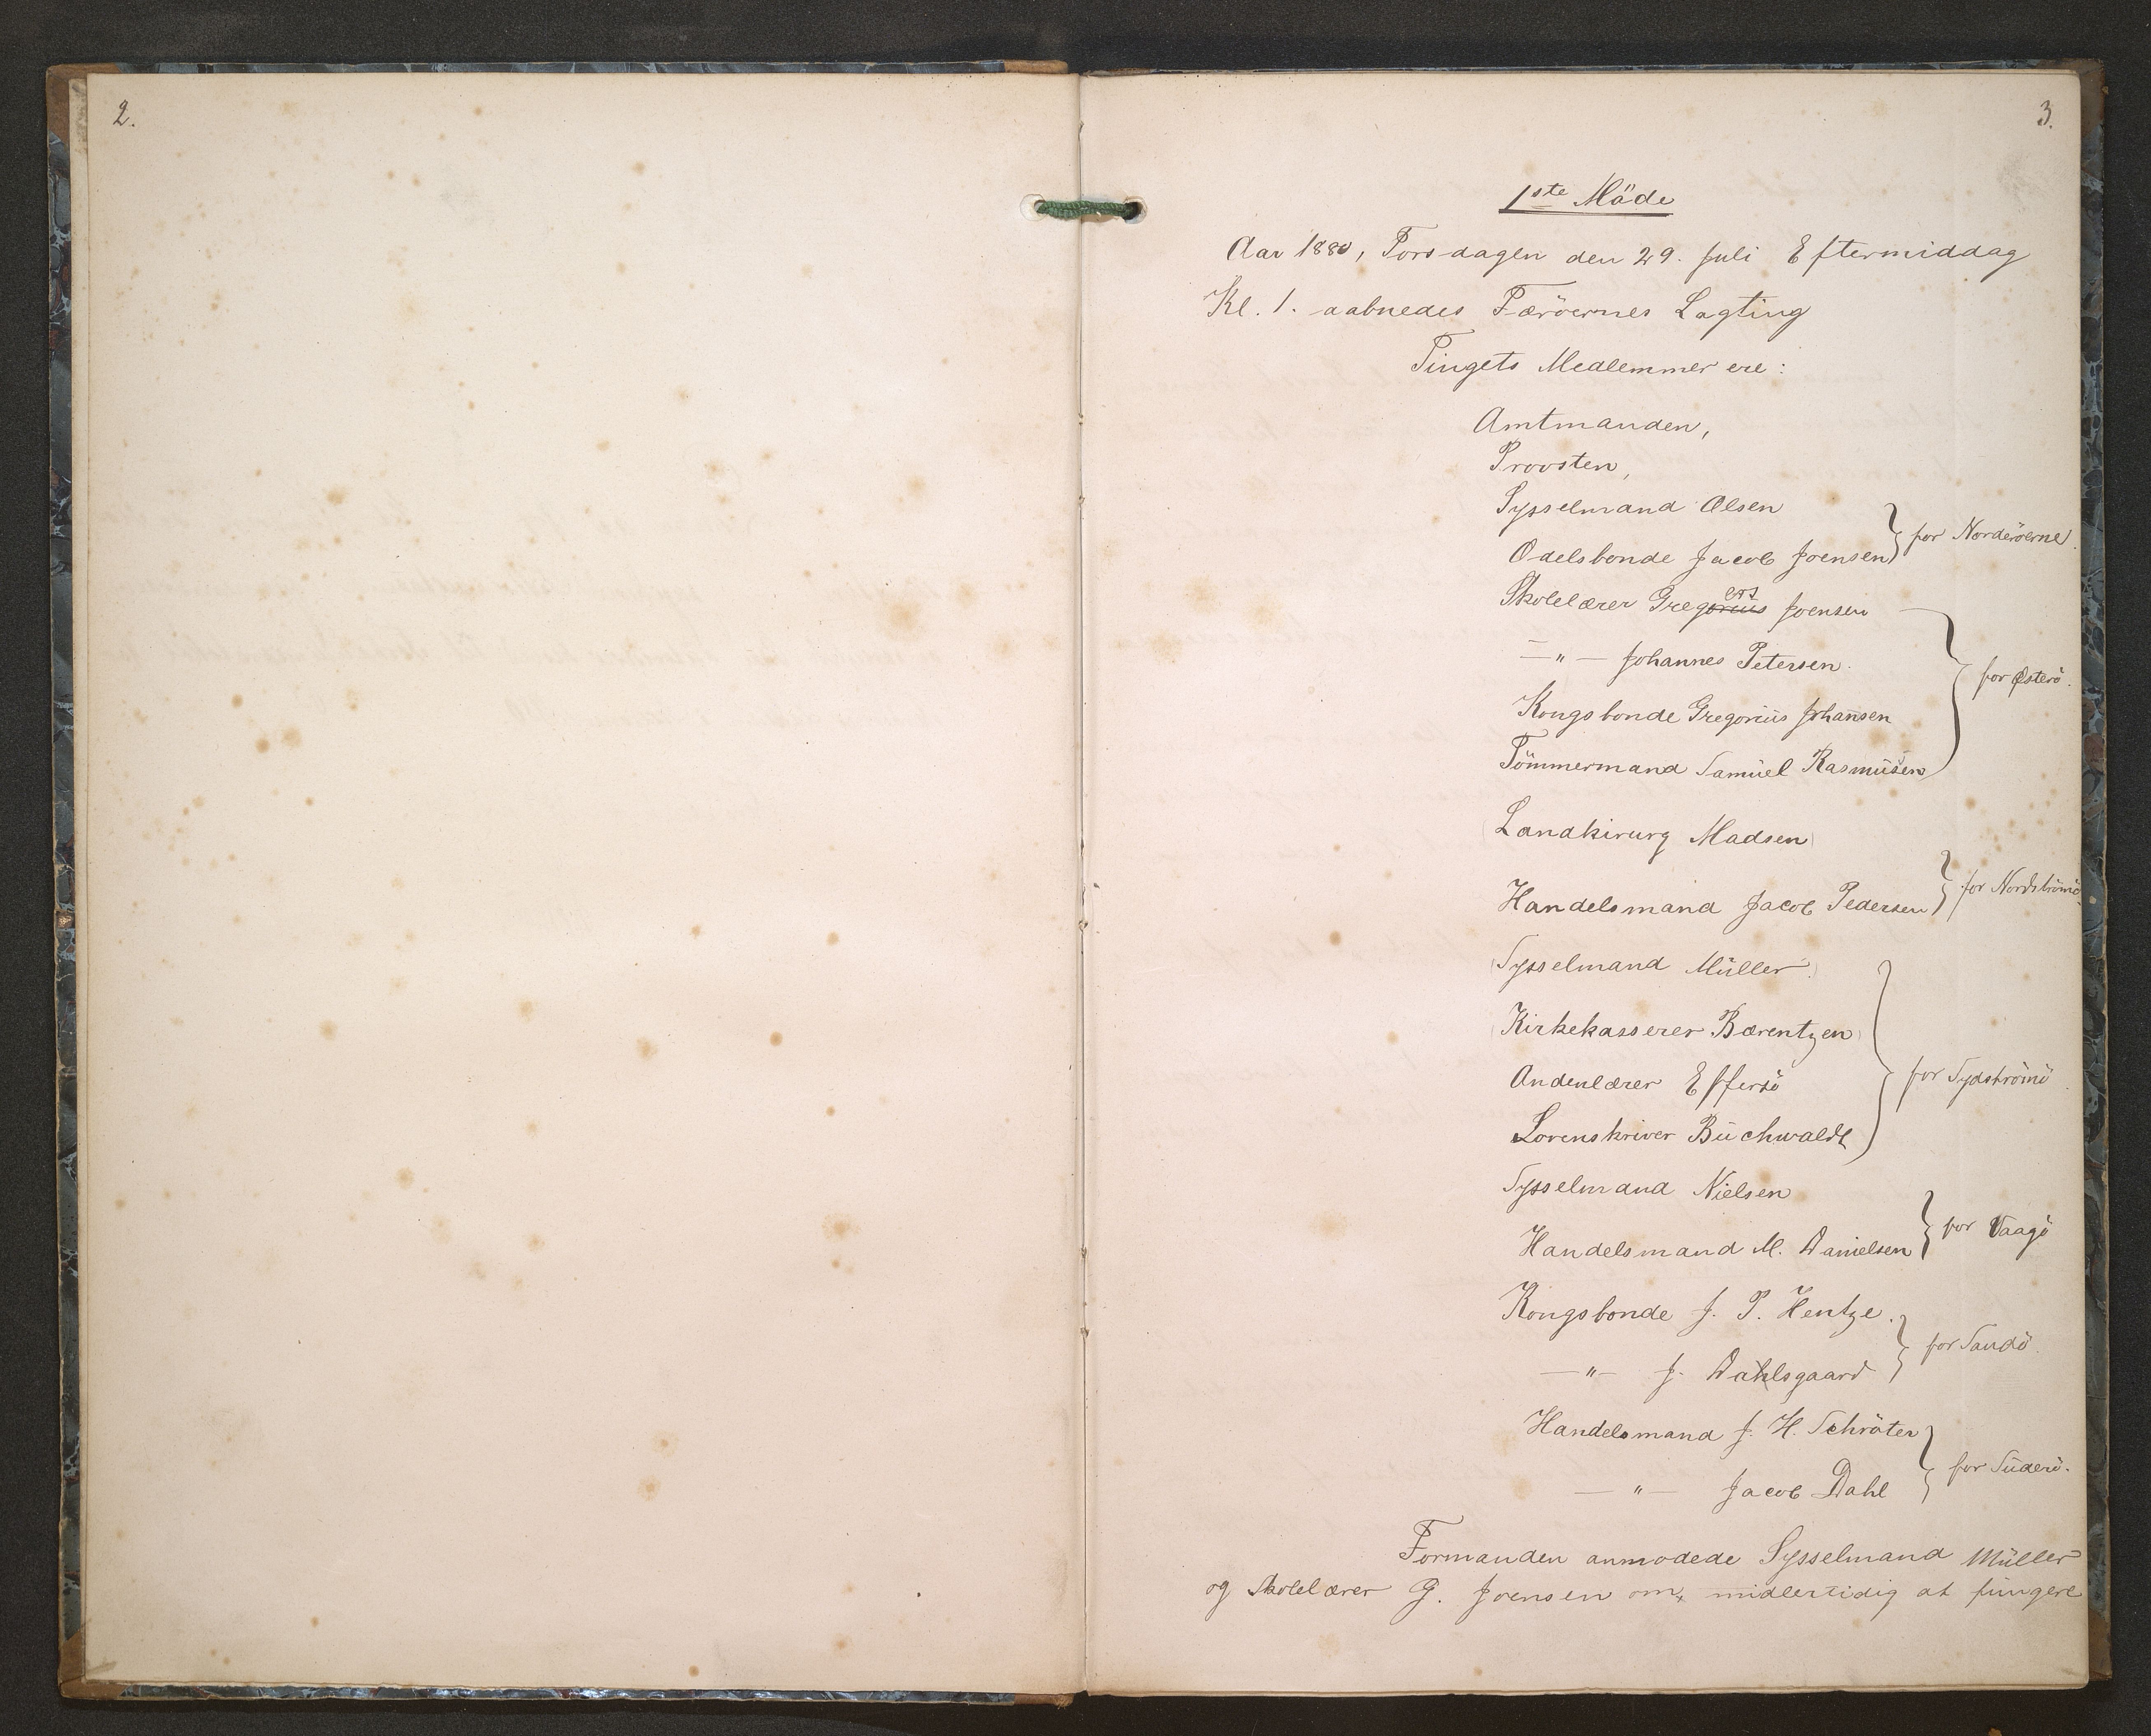 2.
3.
1ste Möde
Aar 1880, Torsdagen den 29. Juli Eftermiddag
Kl. 1. aabnedes Færöernes Lagting
Tingets Medlemmer ere:
Amtmanden,
Provsten,
Sysselmand Olsen
Odelsbonde Jacob Joensen } for Norderöerne.
Skolelærer Gregorius ers Joensen
—〃— Johannes Petersen.
Kongsbonde Gregoriüs Johansen } for Østerö.
Tömmermand Samüel Rasmüsen
Landkirurg Madsen
Handelsmand Jacob Pedersen } for Nordströmö.
Sysselmand Müller.
Kirkekasserer Bærentzen
Andenlærer Effersö } for Sydströmö
Sorenskriver Büchwaldt
Sysselmand Nielsen
Handelsmand M. Danielsen } for Vaagö
Kongsbonde J. P. Hentze.
—〃— J. Dahlsgaard } for Sandö.
Handelsmand J. H. Schröter
—〃— Jacob Dahl } for Süderö.
Formanden anmodede Sysselmand Müller
og Skolelærer G. Joensen om, midlertidig at füngere